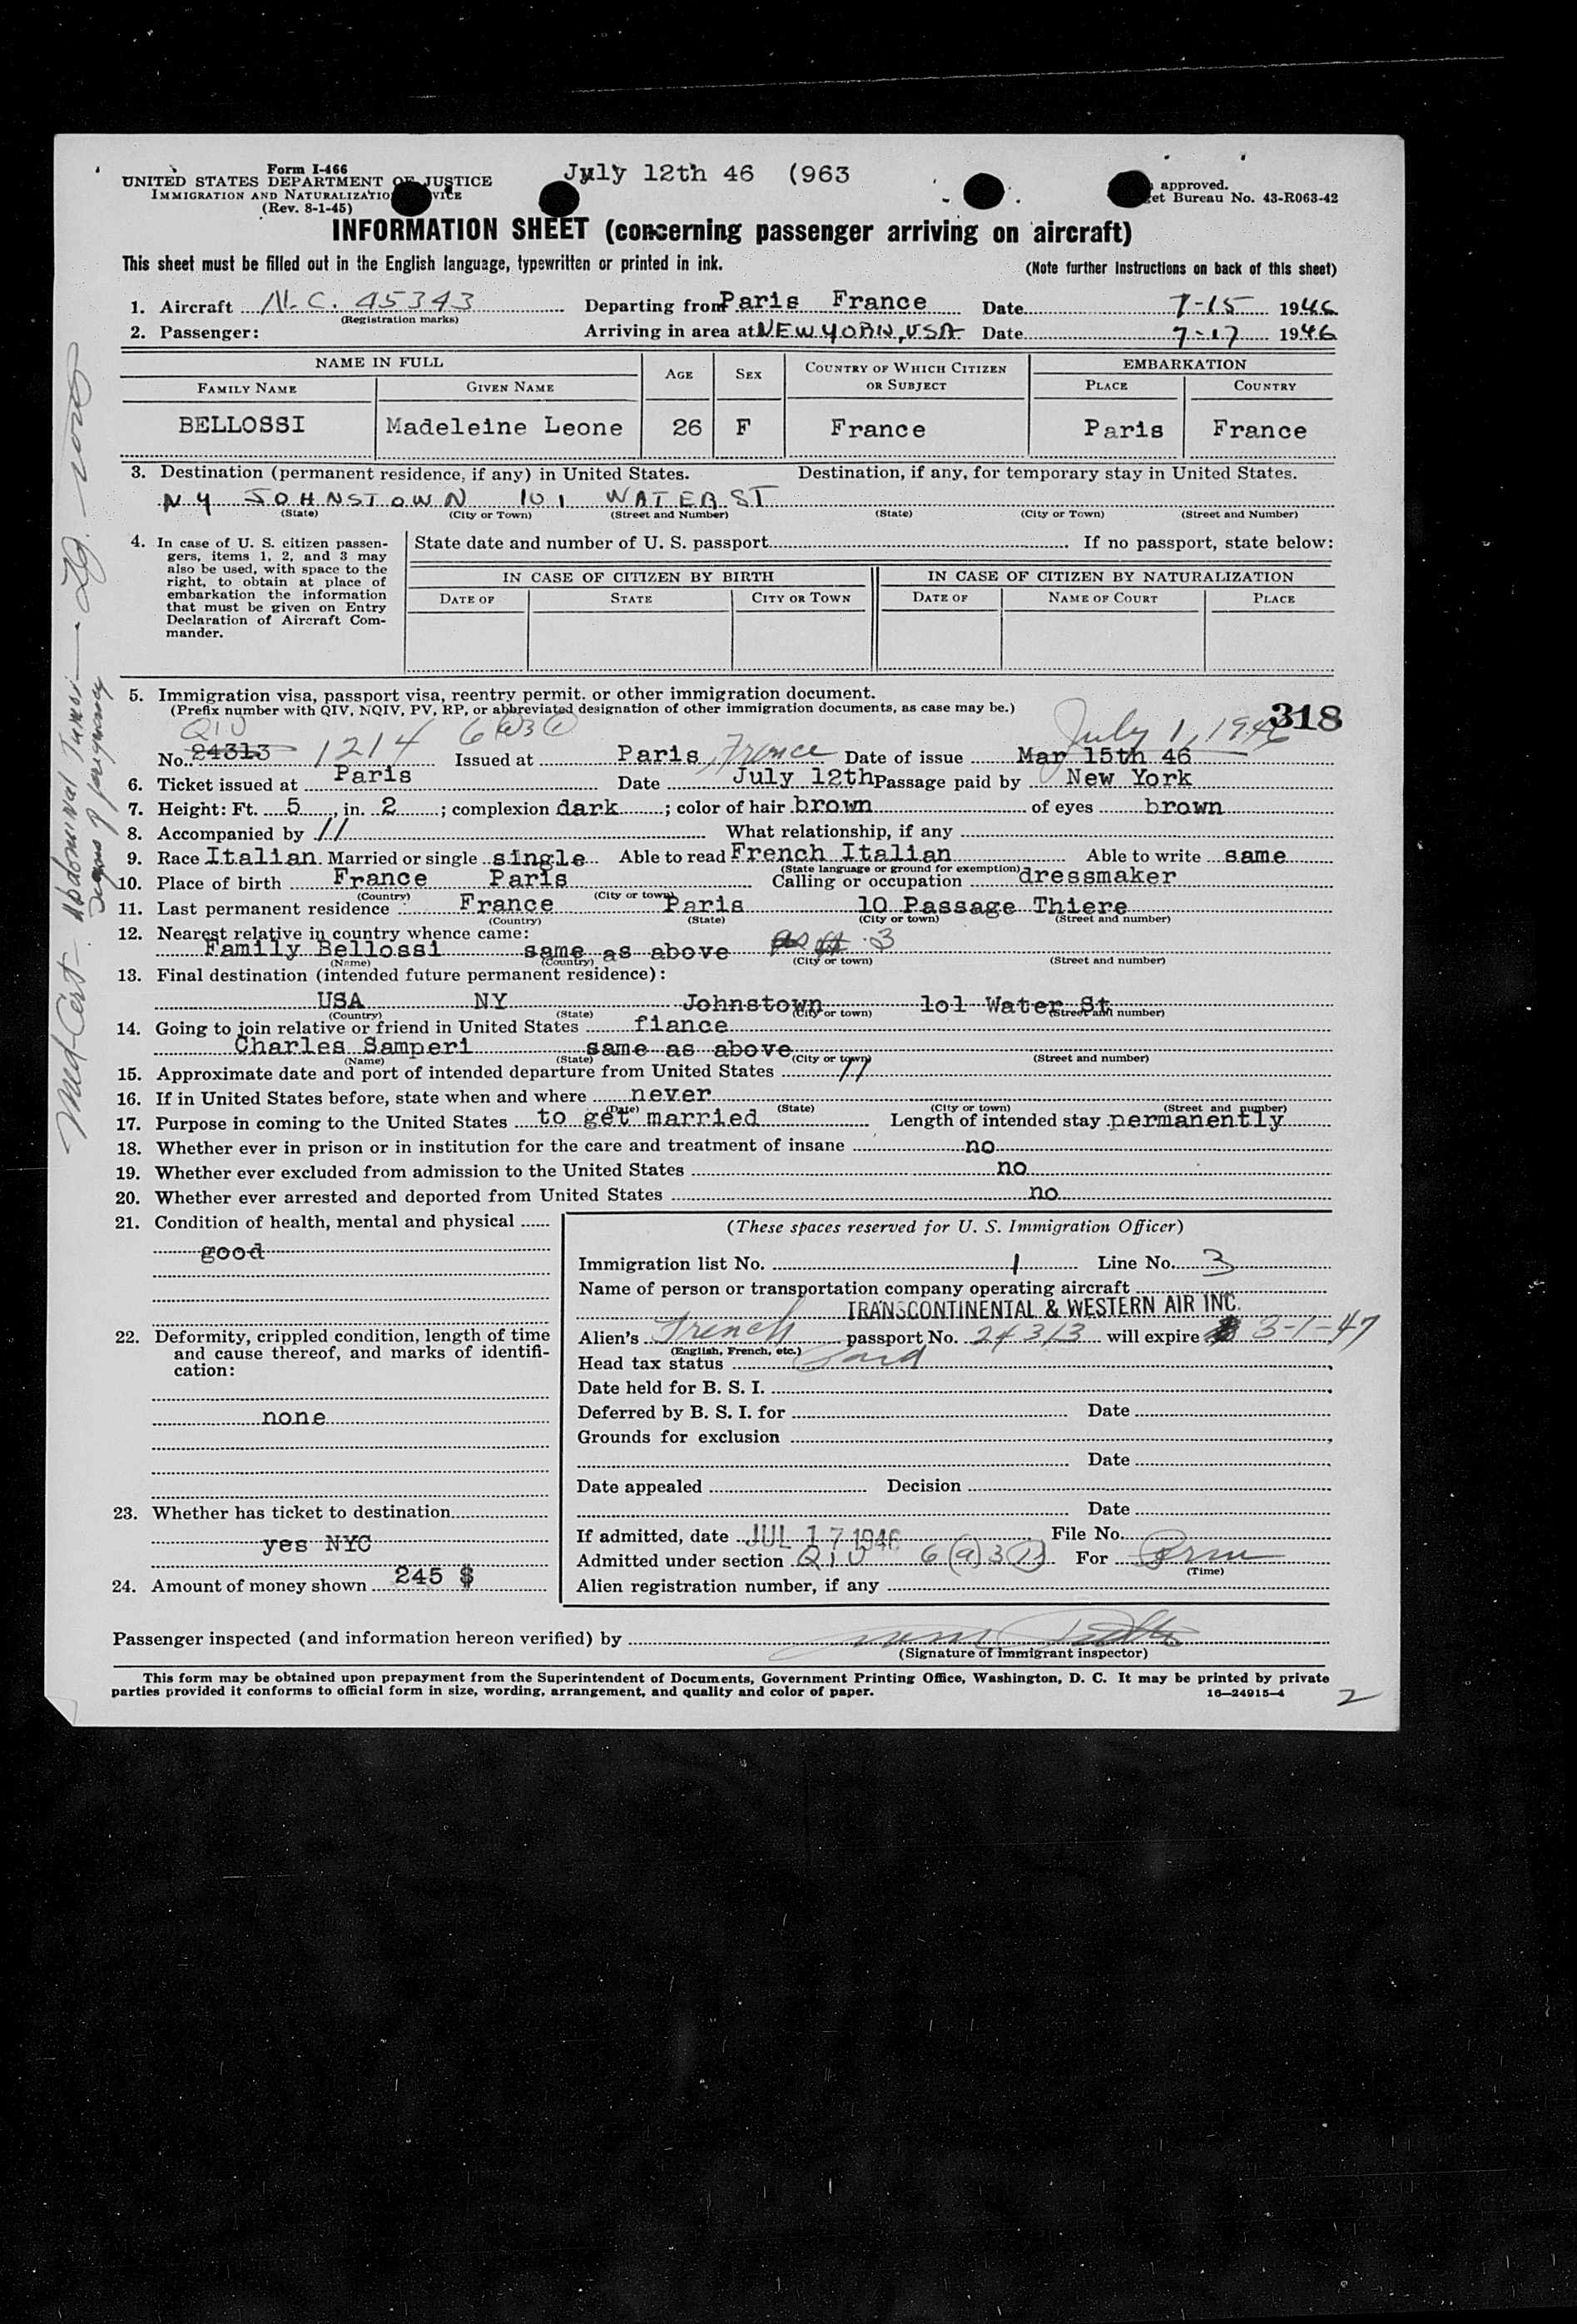 Form I-466
UNITED STATES DEPARTMENT OF JUSTICE
IMMIGRATION AND NATURALIZATIO VICE
(Rev. 8-1-45)
July 12th 46 (963
approved.
et Bureau No. 43-R063-42
INFORMATION SHEET (concerning passenger arriving on aircraft)
This sheet must be filled out in the English language, typewritten or printed in ink.
(Note further instructions on back of this sheet)
1. Aircraft N.C. 45343 Departing from Paris France Date 7-15 1946
(Registration marks)
2. Passenger: Arriving in area at NEW YORK, USA Date 7-17 1946
NAME IN FULL AGE SEX COUNTRY OF WHICH CITIZEN OR SUBJECT EMBARKATION
FAMILY NAME GIVEN NAME PLACE COUNTRY
BELLOSSI Madeleine Leone 26 F France Paris France
3. Destination (permanent residence, if any) in United States. Destination, if any, for temporary stay in United States.
NY JOHNSTOWN 101 WATER ST
(State) (City or Town) (Street and Number) (State) (City or Town) (Street and Number)
4. In case of U. S. citizen passen-
gers, items 1, 2, and 3 may
also be used, with space to the
right, to obtain at place of
embarkation the information
that must be given on Entry
Declaration of Aircraft Com-
mander.
State date and number of U. S. passport If no passport, state below:
IN CASE OF CITIZEN BY BIRTH IN CASE OF CITIZEN BY NATURALIZATION
DATE OF STATE CITY OR TOWN DATE OF NAME OF COURT PLACE
5. Immigration visa, passport visa, reentry permit. or other immigration document.
(Prefix number with QIV, NQIV, PV, RP, or abbreviated designation of other immigration documents, as case may be.)
318
QIV 6(a)3(1) July 1, 1946
No. 24313 1214 Issued at Paris, France Date of issue Mar 15th 46
6. Ticket issued at Paris Date July 12th Passage paid by New York
7. Height: Ft. 5, in. 2; complexion dark; color of hair brown of eyes brown
8. Accompanied by // What relationship, if any
9. Race Italian Married or single single Able to read French Italian Able to write same
(State language or ground for exemption)
10. Place of birth France Paris Calling or occupation dressmaker
(Country) (City or town)
11. Last permanent residence France Paris 10 Passage Thiere
(Country) (State) (City or town) (Street and number)
12. Nearest relative in country whence came:
Family Bellossi same as above
(Name) (Country) (City or town) (Street and number)
13. Final destination (intended future permanent residence):
USA NY Johnstown lol Water St
(Country) (State) (City or town) (Street and number)
14. Going to join relative or friend in United States fiance
Charles Samperi same as above
(Name) (State) (City or town) (Street and number)
15. Approximate date and port of intended departure from United States //
16. If in United States before, state when and where never
(Date) (State) (City or town) (Street and number)
17. Purpose in coming to the United States to get married Length of intended stay permanently
18. Whether ever in prison or in institution for the care and treatment of insane no
19. Whether ever excluded from admission to the United States no
20. Whether ever arrested and deported from United States no
21. Condition of health, mental and physical
good
22. Deformity, crippled condition, length of time
and cause thereof, and marks of identifi-
cation:
none
23. Whether has ticket to destination
yes NYC
24. Amount of money shown 245 $
(These spaces reserved for U. S. Immigration Officer)
Immigration list No. 1 Line No. 3
Name of person or transportation company operating aircraft
TRANSCONTINENTAL & WESTERN AIR INC.
Alien's French passport No. 24313 will expire 3-1-47
(English, French, etc.)
Head tax status Paid
Date held for B. S. I.
Deferred by B. S. I. for Date
Grounds for exclusion
Date
Date appealed Decision
Date
If admitted, date JUL 17 1946 File No.
Admitted under section QIV 6(a)3(1) For Perm
(Time)
Alien registration number, if any
Passenger inspected (and information hereon verified) by
(Signature of immigrant inspector)
This form may be obtained upon prepayment from the Superintendent of Documents, Government Printing Office, Washington, D. C. It may be printed by private
parties provided it conforms to official form in size, wording, arrangement, and quality and color of paper.
16—24915-4
2
Med-Cert- Abdominal Tumor